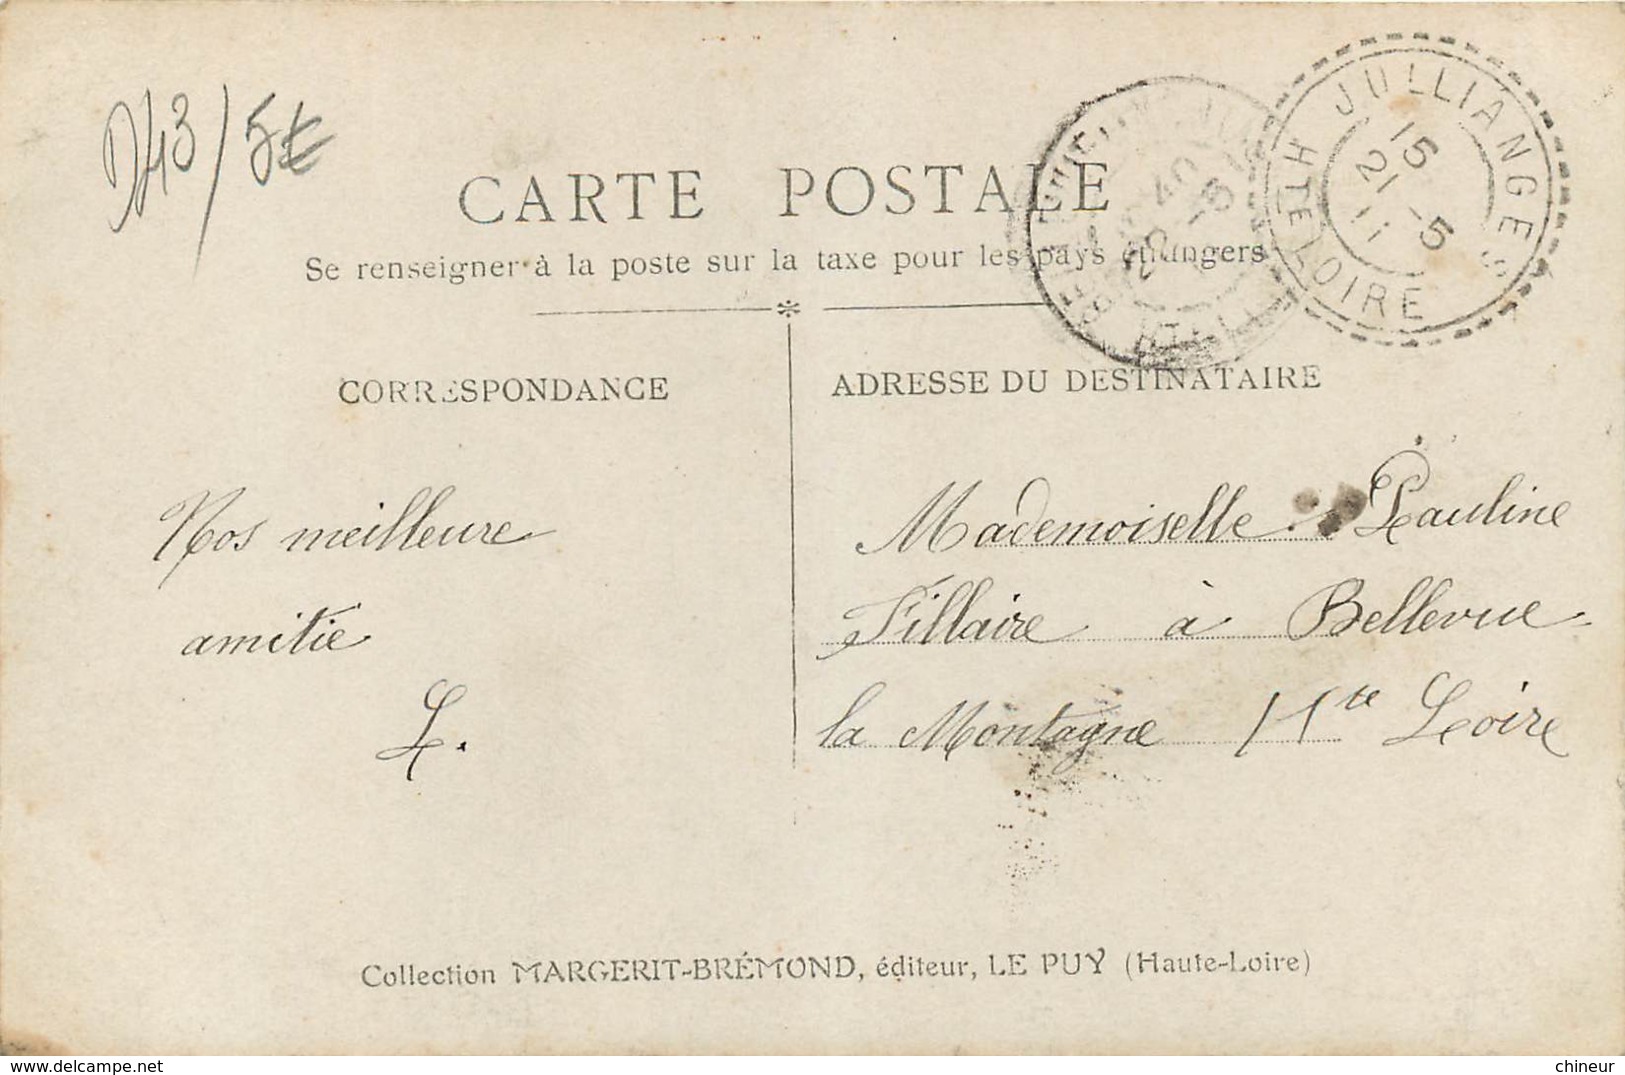 D43/5€
CARTE POSTALE
Se renseigner à la poste sur la taxe pour les pays étrangers
JULLIANGES
HTE LOIRE
15
21 -5
11
CORRESPONDANCE
ADRESSE DU DESTINATAIRE
Nos meilleure
amitie
L.
Mademoiselle Pauline
Fillaire à Bellevue
la Montagne Hte Loire
Collection MARGERIT-BRÉMOND, éditeur, LE PUY (Haute-Loire)
www.delcampe.net
chineur